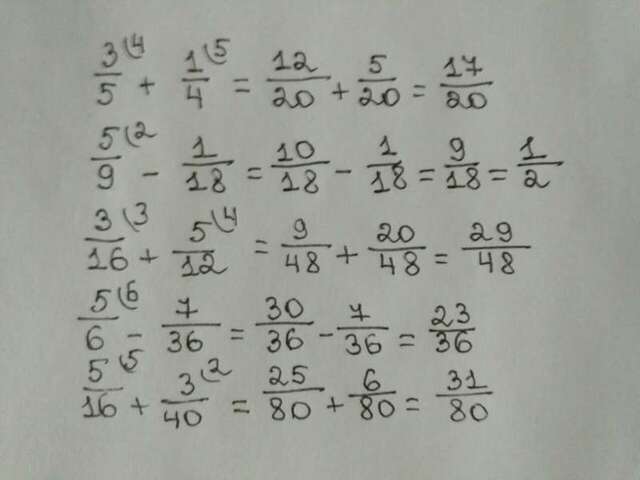 3(4/5 + 1(5/4 = 12/20 + 5/20 = 17/20
5(2/9 - 1/18 = 10/18 - 1/18 = 9/18 = 1/2
3(3/16 + 5(4/12 = 9/48 + 20/48 = 29/48
5(6/6 - 7/36 = 30/36 - 7/36 = 23/36
5(5/16 + 3(2/40 = 25/80 + 6/80 = 31/80